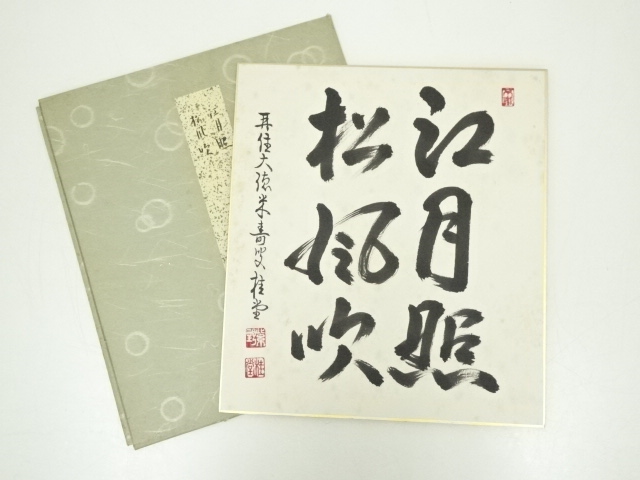 江月照
松風吹
再住大徳米寿叟桂堂
江月照
松風吹